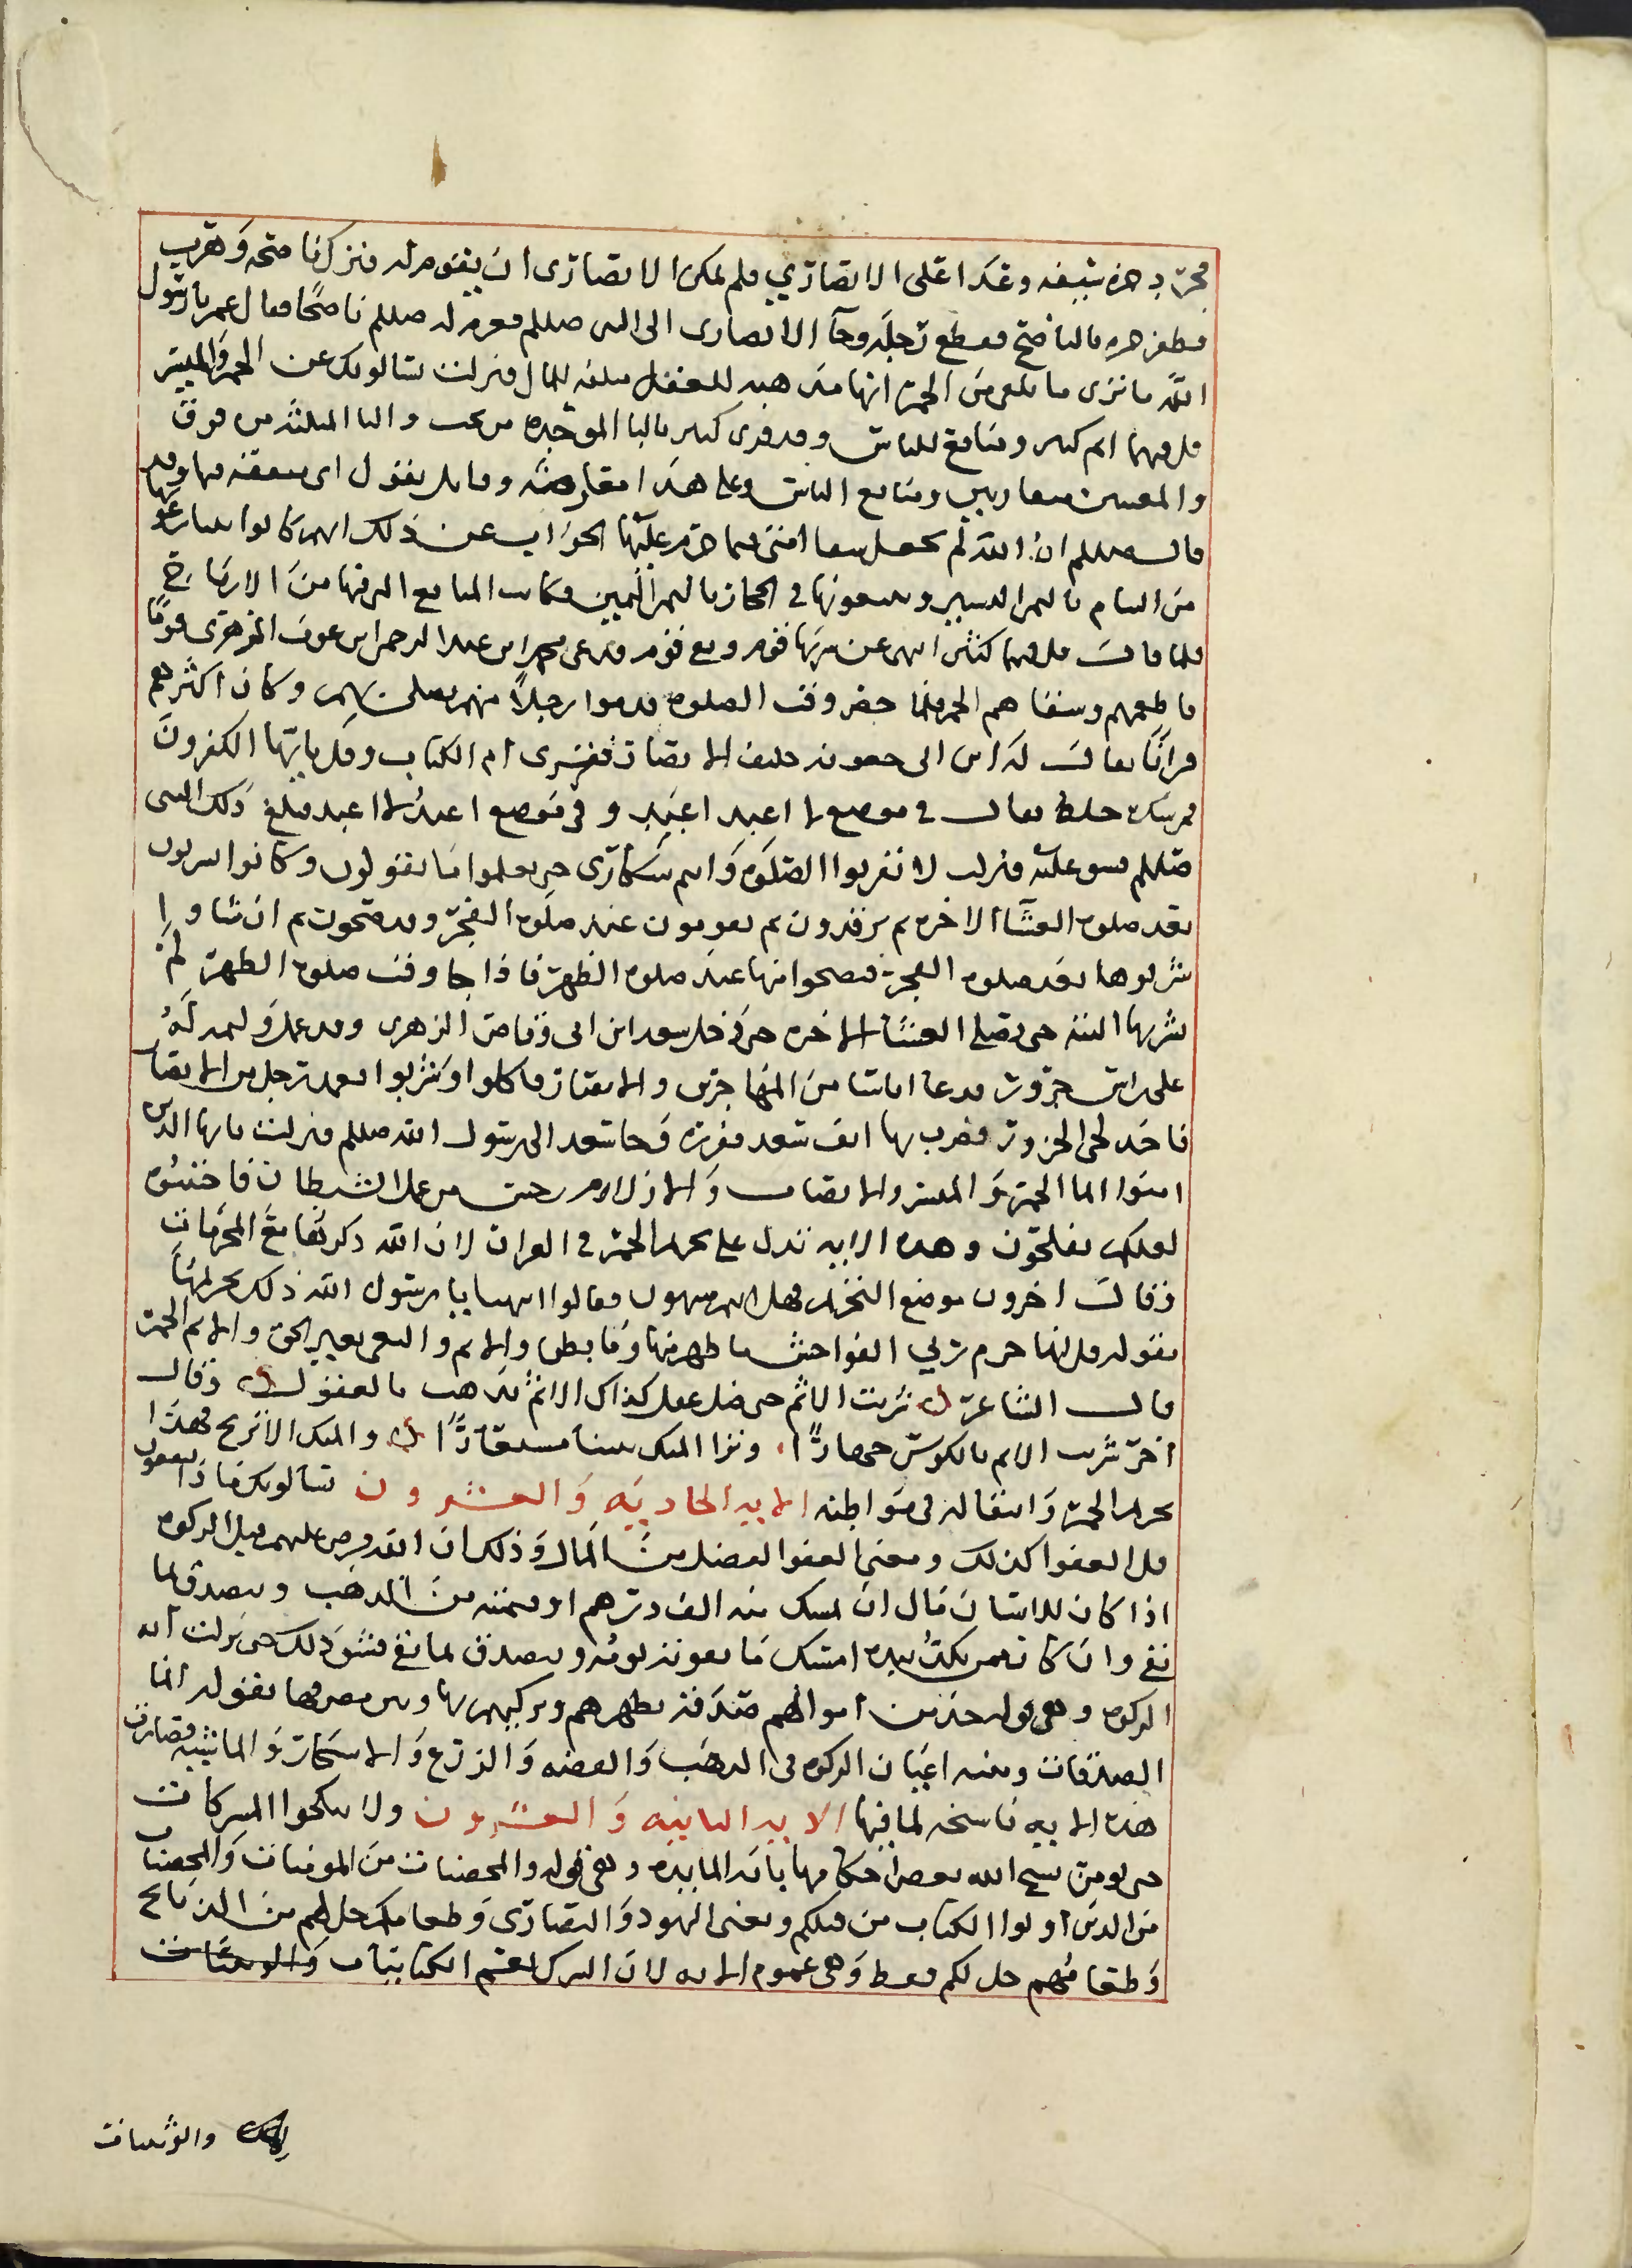 فجرد حمزة سيفه وعدا على الانصاري فلم يمكن الانصارى ان يقوم له فترك ناضحه وهرب
فظفر حمزه بالناضح فقطعه وجا الانصارى الى النبي صللم فغرم له صللم ناضحا فقال عمر يا رسول
الله ما ترى ما نلقى من الخمر انها مذهبه للعقل متلفه للمال فنزلت يسالونك عن الخمر والميسر
قل فيهما اثم كبير ومنافع للناس وقد قرى كبير بالبا الموحده من تحت والثا المثلثه من فوق
والمعنيين متقاربين ومنافع الناس وعلى هذا معارضه وقايل يقول اى منفعه فيها وقد
قال صللم ان الله لم يجعل شفا امتى فيما حرم عليها الجواب عن ذلك انهم كانوا يبتاعونها
من الشام بالثمن اليسير ويبيعونها في الحجاز بالثمن الثمين فكانت المنافع التى فيها من الارباح
فلما قال قل فيهما اثم كبير انتهى عن شربها قوم وبقى قوم فدعى عبد الرحمن ابن عوف الزهرى قومًا
فاطعمهم وسقاهم الخمر فلما حضر وقت الصلوه قدموا رجلاً منهم يصلى بهم وكان اكثرهم
قرانًا يقال له ابن ابى جعونه حليف الانصار فقرى ام الكتاب وقل يايها الكفرون
فمن سكره خلط فقال فى موضع لا اعبد اعبد و فى موضع اعبد لا اعبد فبلغ ذلك النبى
صللم فشق عليه فنزلت لا تقربوا الصلوه وانتم سكارى حتى تعلموا ما تقولون وكانوا يشربون
بعد صلوه العشا الاخره ثم يرقدون ثم يقومون عند صلوه الفجر وقد صحوا ثم ان شاوا
شربوها بعد صلوه الفجر فيصحوا منها عند صلوه الظهر فاذا جا وقت صلوه الظهر لم
يشربها البته حتى يصلى العشا الاخره حتى دخل سعد ابن ابى وقاص الزهرى وقد عمل وليمه له
على راس جزور فدعا اناسا من المهاجرين والانصار فاكلوا وشربوا فعمد رجل من الانصار
فاخذ لحى الجزور فضرب بها انف سعد ففزره فجا سعد الى رسول الله صللم فنزلت يايها الذين
امنوا انما الخمر والميسر والانصاب والازلام رجس من عمل الشيطان فاجتنبوه
لعلكم تفلحون وهذه الايه تدل على تحريم الخمر فى القران لان الله ذكرها مع المحرمات
وقال اخرون موضع التحريم فهل انتم منتهون فقالوا انتهينا يا رسول الله وذلك تحريمها
بقوله قل انما حرم ربي الفواحش ما ظهر منها وما بطن والاثم والبغى بغير الحق والاثم الخمر
قال الشاعر شربت الاثم حتى ضل عقلى كذاك الاثم تذهب بالعقول وقال
اخر تشرب الاثم بالكوس جهارًا وترا المتك بيننا مستعارًا والمتك الاترج فهذا
تحريم الخمر وانتقاله فى مواطنه الايه الحاديه والعشرون يسالونك ماذا ينفقون
قل العفوا كذلك ومعنى العفو الفضل من المال وذلك ان الله فرض عليهم قبل الزكوه
اذا كان للانسان مال ان يمسك منه الف درهم او قيمته من الذهب ويتصدق بما
بقى وان كان ممن يكد بيده امسك ما يقوته يومه ويتصدق بما بقى فشق ذلك حتى نزلت ايه
الزكوه وهى قوله خذ من اموالهم صدقه تطهرهم وتزكيهم بها وبين مصرفها بقوله انما
الصدقات وبينه اعيان الزكوه فى الذهب والفضه والزرع والاشجار والماشيه فصارت
هذه الايه ناسخه لما فيها الايه الثانيه والعشرون ولا تنكحوا المشركات
حتى يومن نسخ الله بعض احكامها بايه المايده وهى قوله والمحصنات من المومنات والمحصنات
من الذين اوتوا الكتاب من قبلكم ويعنى اليهود والنصارى وطعامك حل لهم من الذبايح
وطعامهم حل لكم فقط وهى عموم الايه لان الشرك يعم الكتابيات والوثنيات
والوثنيات